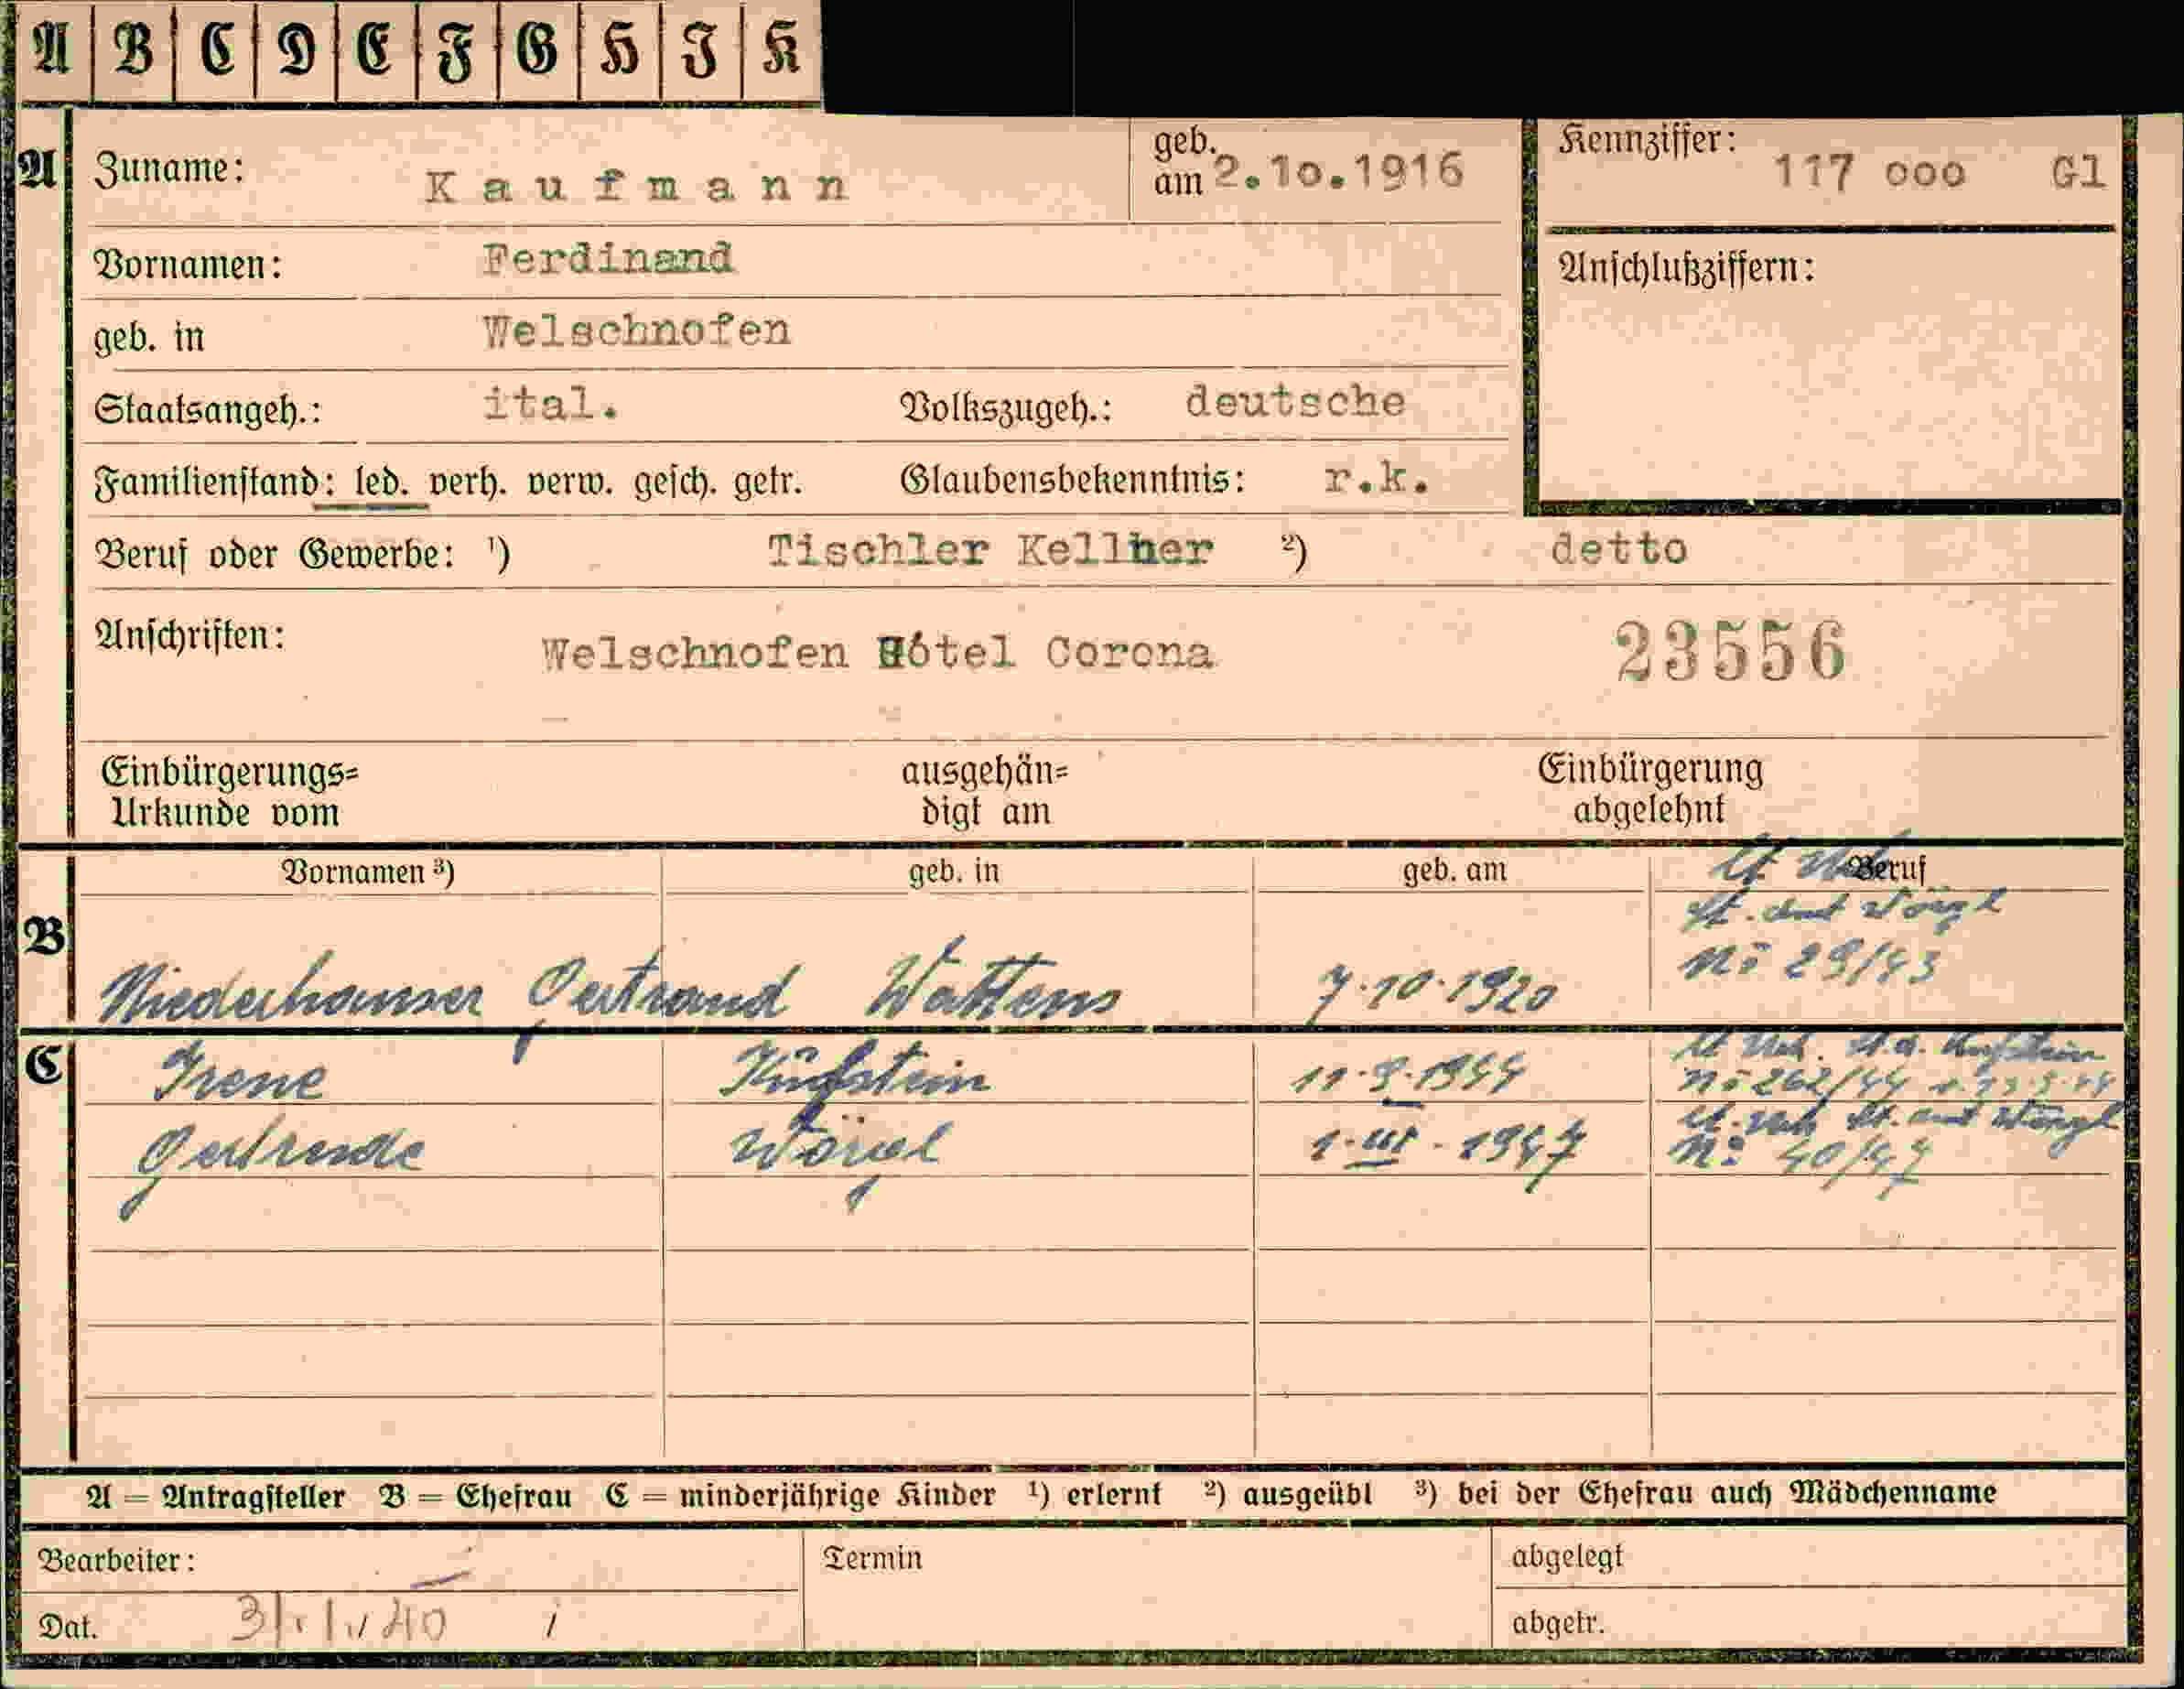 A B C D E F G H I K
A Zuname: Kaufmann geb. am 2.10.1916 Kennziffer: 117 000 Gl
Vornamen: Ferdinand Anschlußziffern:
geb. in Welschnofen
Staatsangeh.: ital. Volkszugeh.: deutsche
Familienstand: led. verh. verw. gesch. getr. Glaubensbekenntnis: r.k.
Beruf oder Gewerbe: ¹) Tischler Kellner ²) detto
Anschriften: Welschnofen Hôtel Corona 23556
Einbürgerungs= ausgehän= Einbürgerung
Urkunde vom digt am abgelehnt
Vornamen ³) geb. in geb. am Beruf
St. Amt Wörgl
B Niederhauser Gertraud Wattens 7.10.1920 No 29/43
C Irene Kufstein 11.9.1944 No 262/44
Gertrude Wörgl 1.III.1947 St. Amt Wörgl No 40/47
A = Antragsteller B = Ehefrau C = minderjährige Kinder ¹) erlernt ²) ausgeübt ³) bei der Ehefrau auch Mädchenname
Bearbeiter: Termin abgelegt
Dat. 31.1.40 abgetr.